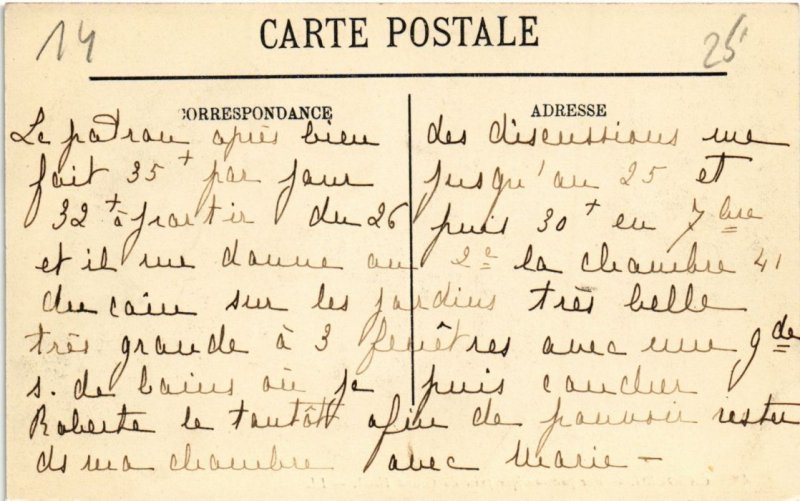 14
25
CARTE POSTALE
CORRESPONDANCE
ADRESSE
Le patron après bien des discussions me
fait 35 + par jour jusqu'au 25 et
32 + à partir du 26 puis 30 + en 7bre
et il me donne au 2e la chambre 41
du coin sur les jardins très belle
très grande à 3 fenêtres avec une gde
s. de bains où je puis coucher
Roberte le tantôt afin de pouvoir rester
ds ma chambre avec Marie -